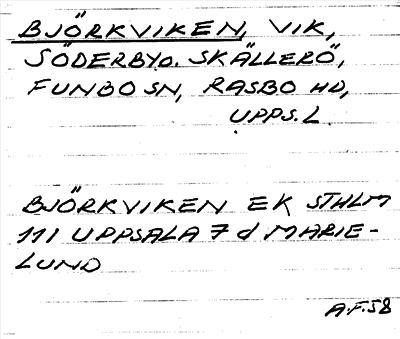 BJÖRKVIKEN, VIK,
SÖDERBYO. SKÄLLERÖ,
FUNBO SN, RASBO HD,
UPPS.L.
BJÖRKVIKEN EK STHLM
111 UPPSALA 7 d MARIE-
LUND
A.F.58